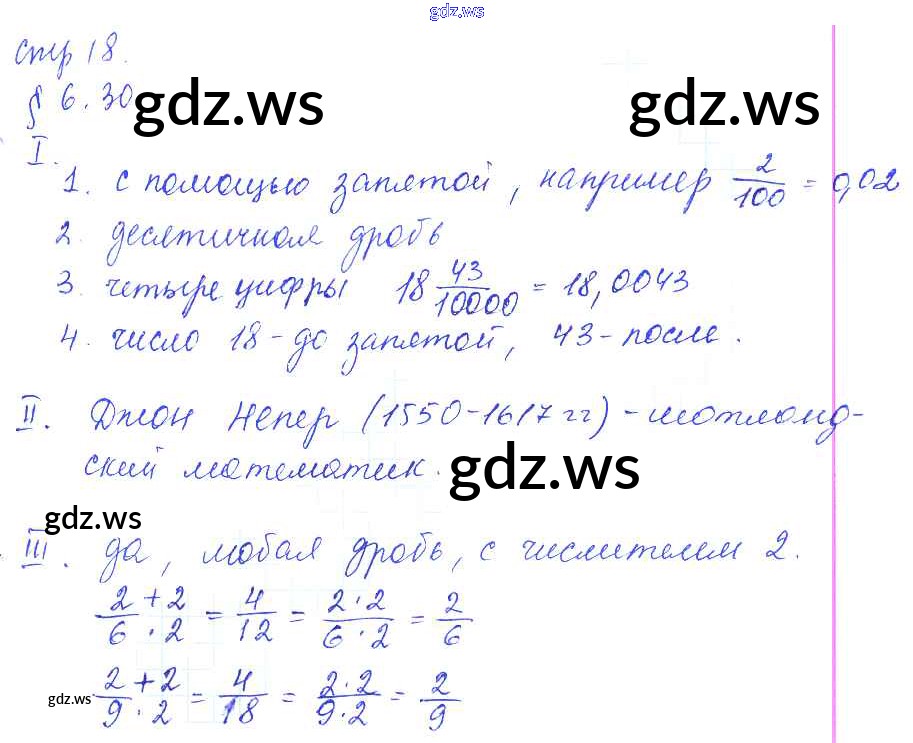 gdz.ws
стр 18.
§ 6.30
gdz.ws
gdz.ws
I.
1. с помощью запятой, например 2/100 = 0,02
2. десятичная дробь
3. четыре цифры 18 43/10000 = 18,0043
4. число 18 - до запятой, 43 - после.
II. Джон Непер (1550-1617 гг) - шотланд-
ский математик.
gdz.ws
gdz.ws
III. да, любая дробь, с числителем 2.
2+2/6·2 = 4/12 = 2·2/6·2 = 2/6
gdz.ws
2+2/9·2 = 4/18 = 2·2/9·2 = 2/9